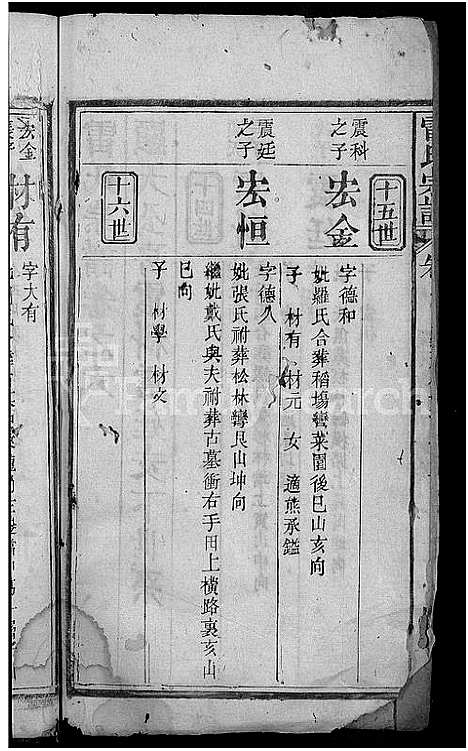 十五世
震科之子
宏金
字德和
妣羅氏合葬稻塲灣菜園後巳山亥向
子 材有 材元 女 適熊承鑑
震廷之子
宏恒
字德久
妣張氏祔葬松林灣艮山坤向
繼妣戴氏與夫祔葬古墓衝右手田上橫路裏亥山
巳向
子 材學 材文
十六世
宏金
材有
字大有
FamilySearch